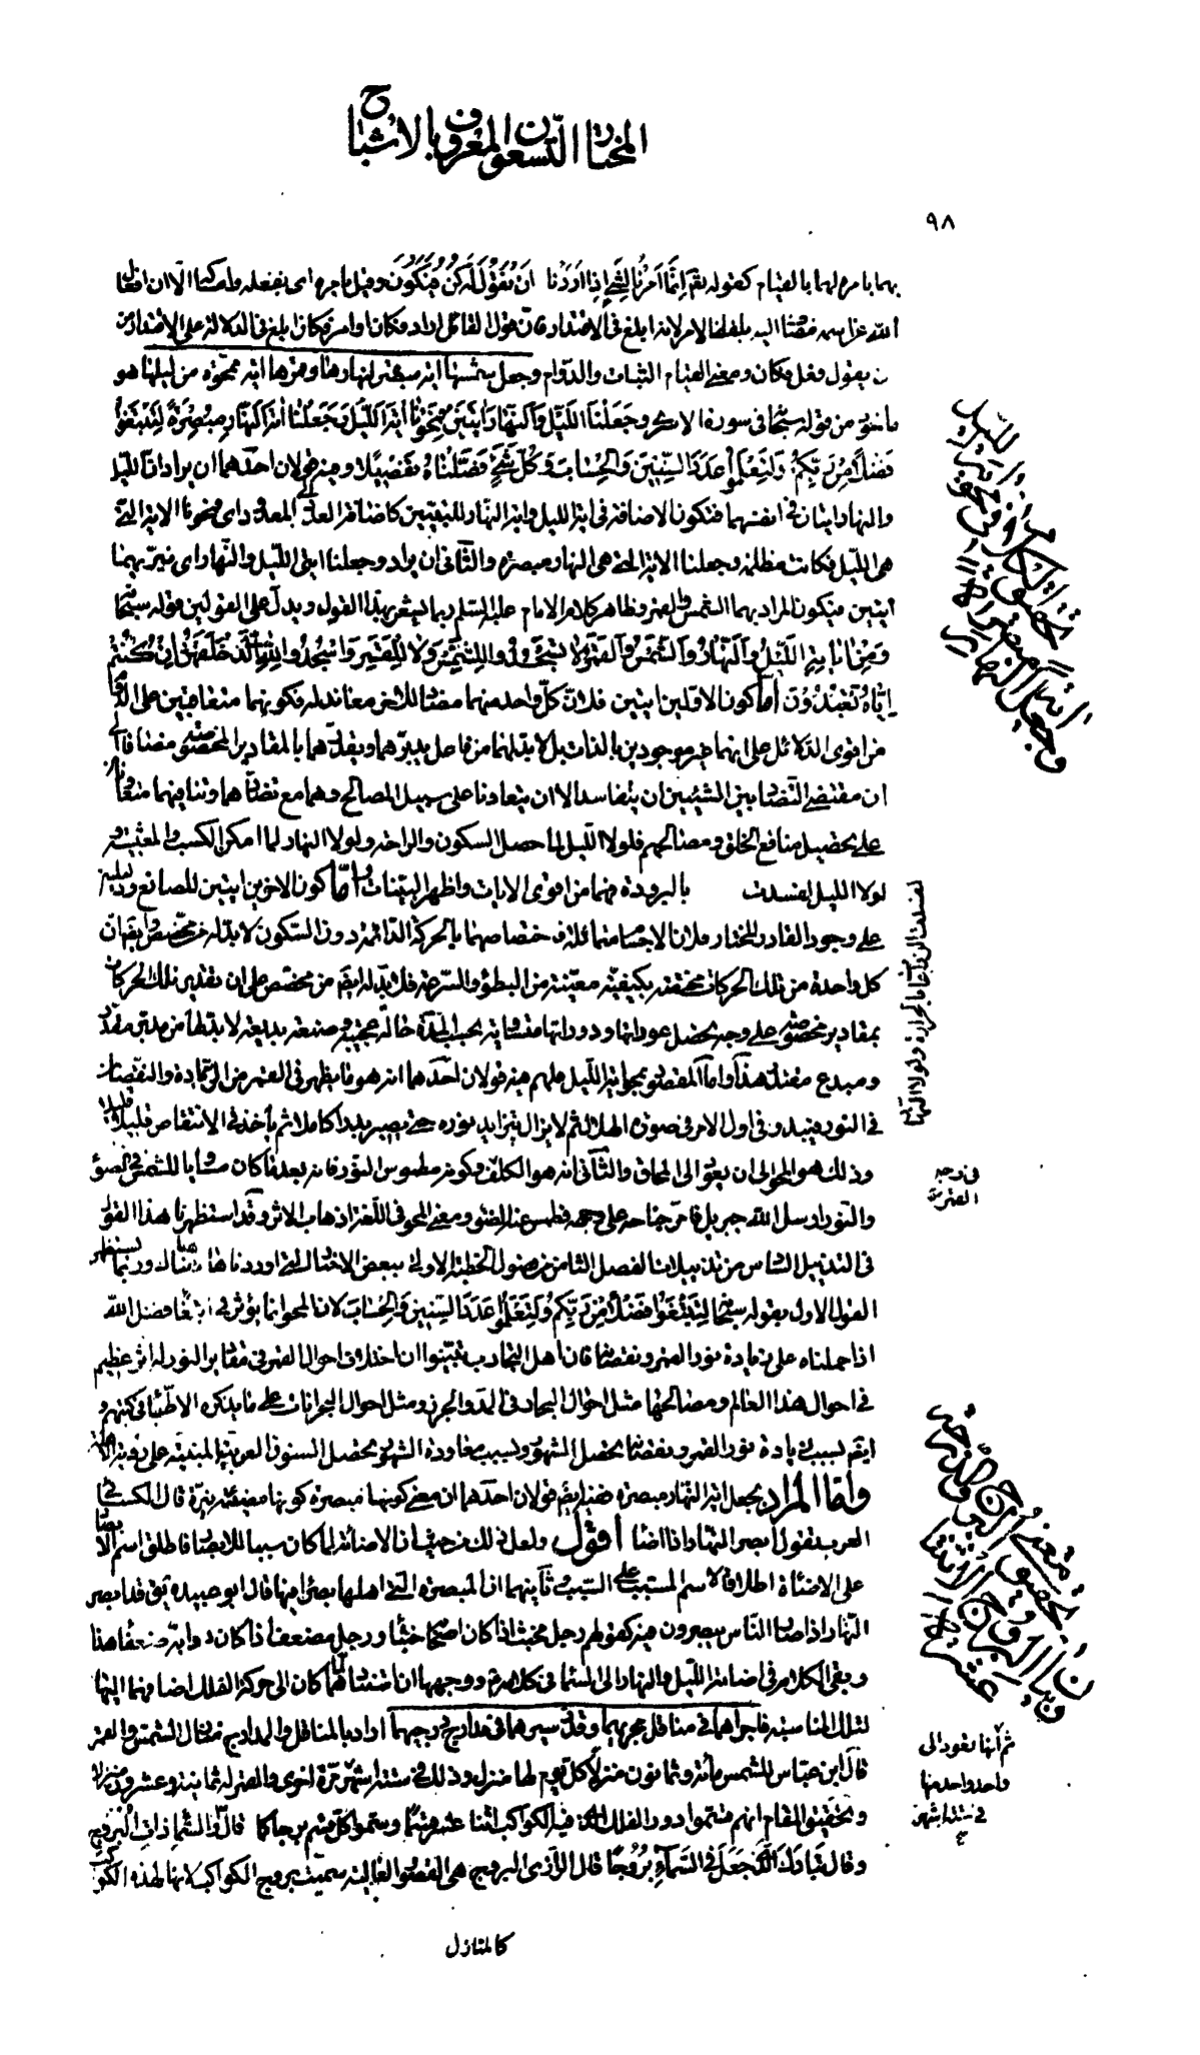 المختار التسعون المعروف بالاشباح
٩٨
بهما بامره لهما بالقيام كقوله تعم اِنَّما اَمرُنا لِشَيءٍ اِذا اَرَدْنا اَنْ نَقُولَ لَهُ كُنْ فَيَكُون وقيل بامره اى بفعله وامساكهما الّا ان افعال
الله عز اسمه مضافا اليه بلفظ الامر لانه ابلغ فى الاقتدار فانّ قول القائل اراد فكان او امر فكان ابلغ فى الدلالة على الاقتدار من
ان يقول فعل فكان ومعنى القيام الثبات والدّوام وجعل شمسها اية مبصرة لنهارها وقمرها اية ممحوّة من ليلها هو
ماخوذ من قوله سبحانه فى سورة الاسرى وجَعَلْنَا اللَّيْلَ وَالنَّهارَ ايَتَيْنِ فَمَحَوْنا ايَةَ اللَّيْلِ وَجَعَلْنا ايَةَ النَّهارِ مُبْصِرَةً لِتَبْتَغُوا
فَضْلاً مِنْ رَبِّكُمْ وَلِتَعْلَمُوا عَدَدَ السِّنينَ وَالْحِسابَ وَكُلَّ شَيْءٍ فَصَّلْناهُ تَفْصيلاً وفيه قولان احدهما ان يراد انّ الليل
والنهار ايتان فى انفسهما فتكون الاضافة فى اية الليل واية النهار للتبيين كاضافة العدد الى المعدود اى فمحونا الاية التى
هى اللّيل فكانت مظلمة وجعلنا الاية التى هى النهار مبصرة والثانى ان يراد وجعلنا ايتى اللّيل والنّهار اى نيّريهما
ايتين فيكون المراد بهما الشمس والقمر وظاهر كلام الامام عليه السّلم ربما يشعر بهذا القول ويدلّ على القولين قوله سبحانه
وَمِنْ اياتِهِ اللَّيْلُ وَالنَّهارُ وَالشَّمْسُ وَالْقَمَرُ لا تَسْجُدُوا لِلشَّمْسِ وَلا لِلْقَمَرِ وَاسْجُدُوا لِلّهِ الَّذى خَلَقَهُنَّ اِنْ كُنْتُمْ
اِيّاهُ تَعْبُدُونَ امّا كون الاولين ايتين فلانّ كلّ واحد منهما مضادّ للاخر معاند له فكونهما متعاقبين على الدّوام
من اقوى الدلائل على انهما غير موجودين بالذات بل لا بدّ لهما من فاعل يدبّرهما ويقدّرهما بالمقادير المخصوصة مضافا الى
ان مقتضى التضادّ بين الشيئين ان يتفاسدا لا ان يتعاونا على سبيل المصالح وهما مع تضادّهما وتنافيهما متعاونان
على تحصيل منافع الخلق ومصالحهم فلولا اللّيل لما حصل السكون والراحة ولولا النهار لما امكن الكسب والمعيشة و
لولا الليل لفسدت بالبرودة فهما من اقوى الايات واظهر البيّنات وامّا كون الاخرين ايتين للصانع ودليلين
على وجود القادر المختار فلانّ الاجسام متماثلة فاختصاصهما بالحركة الدائمة دون السّكون لا بدّ له من مخصّص وايضا ان
كل واحدة من تلك الحركات مختصّة بكيفيّة معيّنة من البطؤ والسّرعة فلا بدّ له ايضم من مخصّص على ان تقدير تلك الحركات
بمقادير مخصوصة على وجه تحصل عوداتها ودوراتها متساوية بحسب المدّة حالة عجيبة وصنعة بديعة لا بدّ لها من مدبّر مقدّر
ومبدع مفنن هذا وامّا المقصود بمحو اية اللّيل فلهم فيه قولان احدهما انه هو ما يظهر فى القمر من الزيادة والنقصان
فى النور فيبدو فى اول الامر فى صورة الهلال ثم لا يزال يتزايد نوره حتى يصير بدرا كاملا ثم يأخذ فى الانتقاص قليلا قليلا
وذلك هو المحو الى ان يعود الى المحاق والثانى انه هو الكلف وكونه مطموس النور فانه بعد ما كان مساويا للشمس فى الضوء
والنور ارسل الله جبريل فامرّ جناحه على وجهه فطمس عنه الضوء ومعنى المحو فى اللّغة اذهاب الاثر وقد استظهرنا هذا القول
فى التذييل السادس من تذييلات الفصل الثامن من فصول الخطبة الاولى ببعض الاخبار التى اوردناها هنالك وربّما يستظهر
القول الاول بقوله سبحانه لِتَبْتَغُوا فَضْلاً مِنْ رَبِّكُمْ وَلِتَعْلَمُوا عَدَدَ السِّنينَ وَالْحِسابَ لان المحو انما يؤثر فى ابتغاء فضل الله
اذا حملناه على زيادة نور القمر ونقصانه فان اهل التجارب تبيّنوا ان اختلاف احوال القمر فى مقادير النور له اثر عظيم
فى احوال هذا العالم ومصالحها مثل احوال البحار فى المدّ والجزر ومثل احوال البحرانات على ما يذكره الاطبّاء فى كتبهم و
ايضم بسبب زيادة نور القمر ونقصانه تحصل الشهور وبسبب معاودة الشهور تحصل السنون العربيّة المبنيّة على رؤية الاهلة
وامّا المراد بجعل اية النهار مبصرة ففيه ايضم قولان احدهما ان معنى كونها مبصرة كونها مضيئة نيّرة قال الكسائى
العرب تقول ابصر النهار اذا اضاء اقول ولعل ذلك من حيث ان الاضائة لما كان سببا للابصار فاطلق اسم الابصار
على الاضائة اطلاقا لاسم المسبّب على السّبب وثانيهما ان المبصرة التى اهلها بصراء فيها قال ابو عبيدة يق قد ابصر
النّهار اذا صار النّاس يبصرون فيه كقولهم رجل مخبث اذا كان اصحابه خبثا ورجل مضعف اذا كان دوابّه ضعفا هذا
وبقى الكلام فى اضافة اللّيل والنهار الى السماء فى كلامه ع ووجهها ان استنادهما لما كان الى حركة الفلك اضافهما اليها
لتلك المناسبة فاجراهما فى مناقل مجريهما وقدّر سيرهما فى مدارج درجيهما اراد بالمناقل والمدارج منازل الشمس والقمر
قال ابن عبّاس للشمس مأة وثمانون منزلا كل يوم لها منزل وذلك فى ستّة اشهر وللقمر ثمانية وعشرون منزلا
وتحقيق المقام انهم قسّموا دور الفلك الذى فيه الكواكب اثنا عشر قسما وسمّوا كل قسم برجا كما قال والسّماء ذات البُرُوج
وقال تَبارَكَ الَّذى جَعَلَ فِى السَّمآءِ بُرُوجًا قال الرّازى البروج هى القصور العالية سمّيت بروج الكواكب لانها لهذه الكواكب
كالمنازل
لفسدت الزروع بالحرارة ولولا النهار
فى درجه
القمر
ثم انها تعود الى
واحد واحد منها
فى ستة اشهر